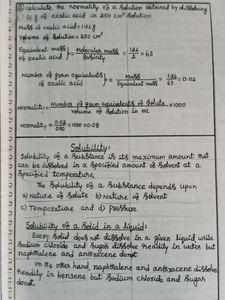 ③ Calculate the normality of a solution obtained by dissolving
1.26g of oxalic acid in 250 cm³ solution
Mass of oxalic acid = 1.26g
Volume of solution = 250 cm³
Equivalent mass of oxalic acid } = Molecular mass / Basicity = 126 / 2 = 63
Number of gram equivalents of oxalic acid } = Mass / Equivalent mass = 1.26 / 63 = 0.02
Normality = Number of gram equivalents of solute / Volume of solution in mL × 1000
Normality = 0.02 / 250 × 1000 = 0.08
Solubility:
Solubility of a substance is its maximum amount that
can be dissolved in a specified amount of solvent at a
specified temperature.
The solubility of a substance depends upon
a) Nature of solute b) Nature of solvent
c) Temperature and d) Pressure
Solubility of a Solid in a liquid:
Every solid does not dissolve in a given liquid while
Sodium chloride and Sugar dissolve readily in water but
naphthalene and anthracene donot
On the other hand, naphthalene and anthracene dissolve
readily in benzene but Sodium chloride and Sugar
donot.